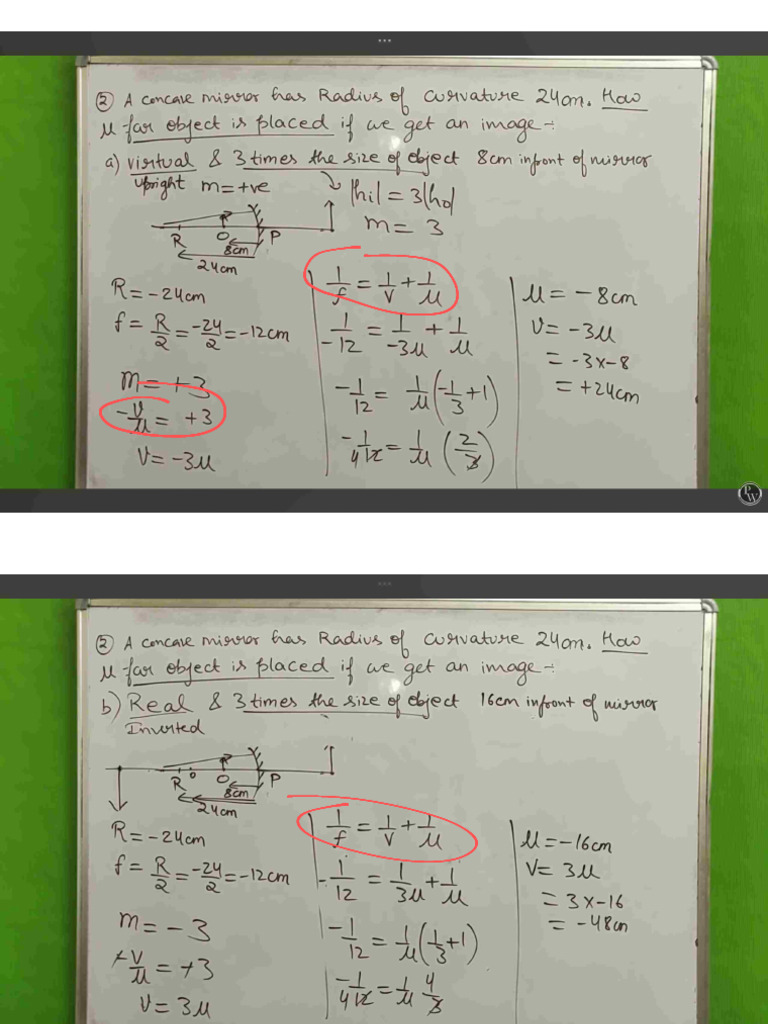 ② A concave mirror has Radius of curvature 24cm. How
μ far object is placed if we get an image :-
a) virtual & 3 times the size of object 8cm infront of mirror
upright m=+ve
|hi| = 3|ho|
m = 3
R O P
8cm
24cm
R = -24cm
f = R/2 = -24/2 = -12cm
m = +3
-v/μ = +3
V = -3μ
1/f = 1/v + 1/μ
1/-12 = 1/-3μ + 1/μ
-1/12 = 1/μ (-1/3 + 1)
-1/4 12 = 1/μ (2/3)
μ = -8cm
V = -3μ
= -3x-8
= +24cm
PW
② A concave mirror has Radius of curvature 24cm. How
μ far object is placed if we get an image :-
b) Real & 3 times the size of object 16cm infront of mirror
Inverted
R o O P
8cm
24cm
R = -24cm
f = R/2 = -24/2 = -12cm
m = -3
-v/μ = +3
V = 3μ
1/f = 1/v + 1/μ
-1/12 = 1/3μ + 1/μ
-1/12 = 1/μ (1/3 + 1)
-1/4 12 = 1/μ 4/3
μ = -16cm
V = 3μ
= 3x-16
= -48cm